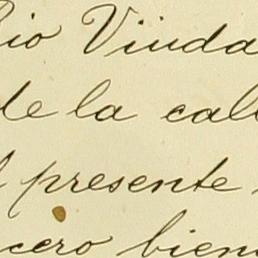 io Viuda
de la call
presente
cero bien